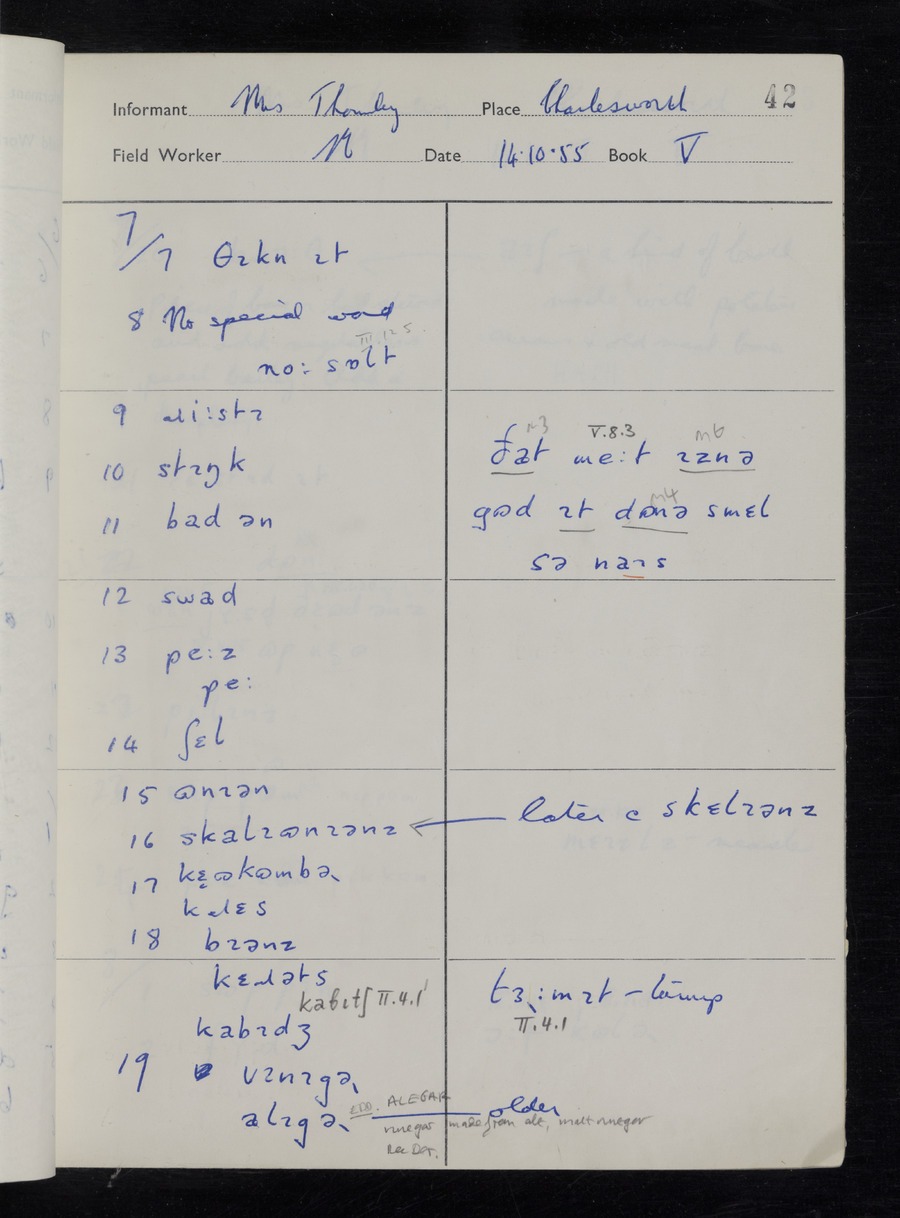 42
Informant Mrs Thornley Place Charlesworth
Field Worker Date 14·10·55 Book V
7/7 θɪkn ɪt
8 No special word
III 12 5
no: sɒlt
9 ɹi:stɪ
10 stɪŋk
11 bad ən
V.8.3 m6
ðat me:t ɪznə
m4
gʊd ɪt dʊnə smɛl
sə naɪs
12 swad
13 pe:z
pe:
14 ʃɛl
15 ʊnɪən
16 skalɪʊnɪənz later c skɛlɪənz
17 kɛ̨ʊkʊmbə˞
kɹɛs
18 bɪənz
kɛɹəts
kabɪtʃ II.4.1
kabɪdʒ
tɜ˞:mɪt – turnip
II.4.1
19 vɪnɪgə˞
alɪgə˞ EDD. ALEGAR older
vinegar made from ale, malt vinegar